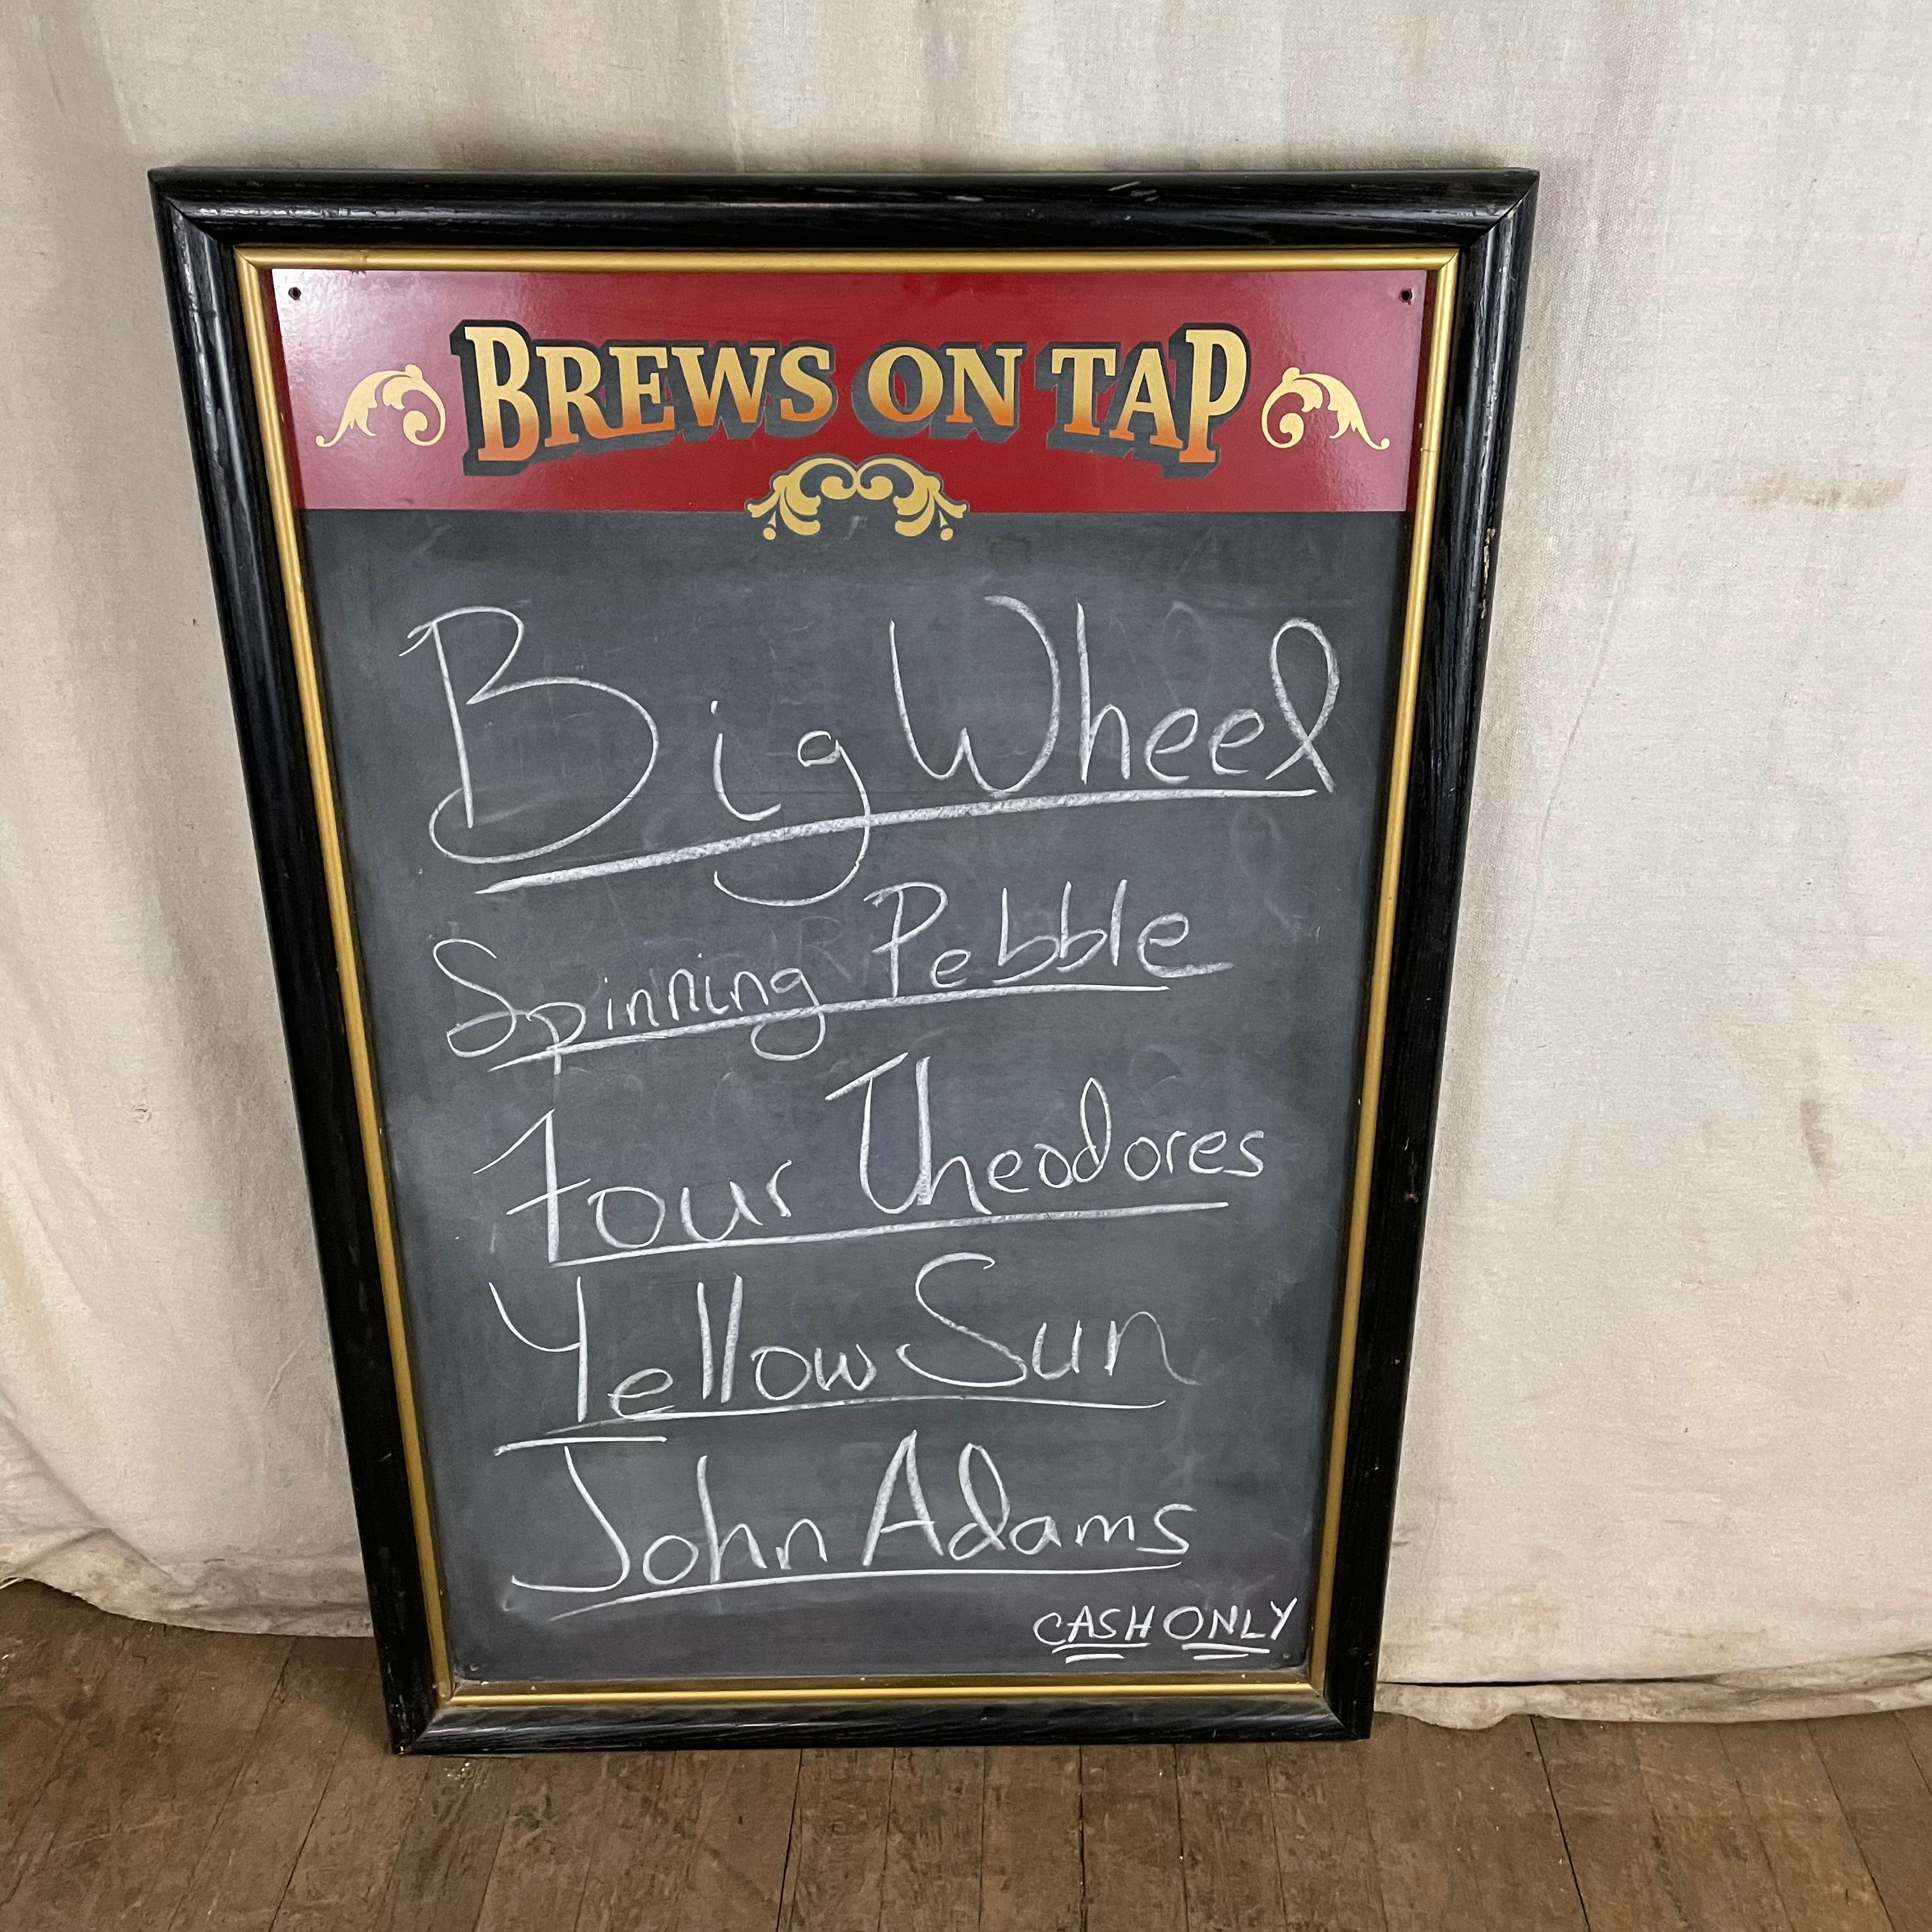 BREWS ON TAP
Big Wheel
Spinning Pebble
Four Theodores
Yellow Sun
John Adams
CASH ONLY